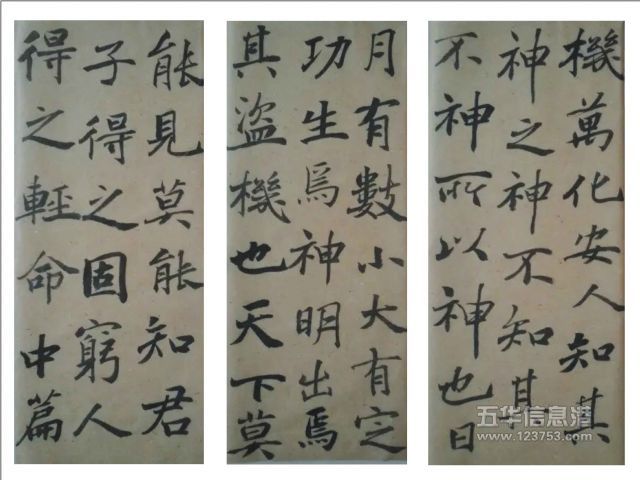 機萬化安人知其
神之神不知其
不神所以神也日
月有數小大有定
功生焉神明出焉
其盜機也天下莫
能見莫能知君
子得之固窮人
得之輕命中篇
五华信息港
www.123753.com